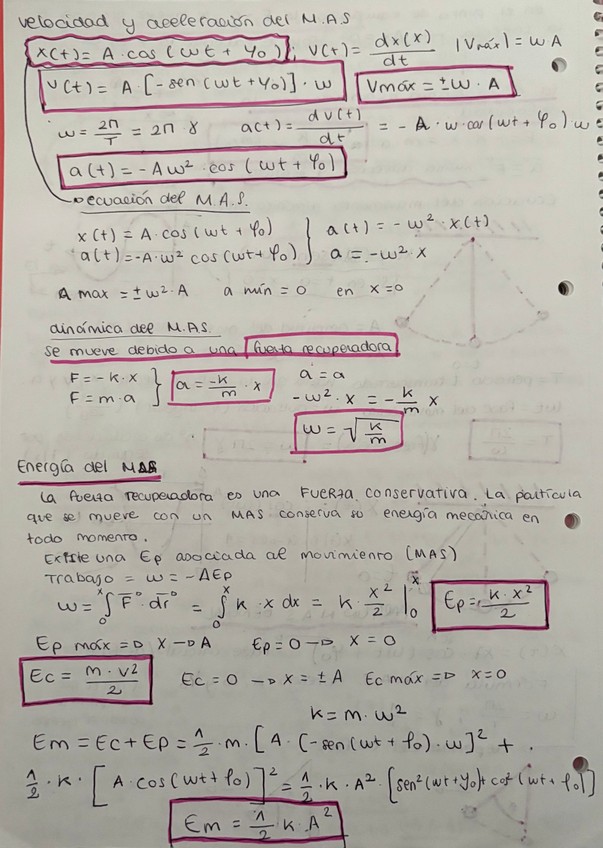 velocidad y aceleración del M.AS
x(t) = A · cos (wt + φ₀) ; v(t) = dx(x)/dt |Vmáx| = wA
v(t) = A · [-sen (wt + φ₀)] · w Vmáx = ±w · A
w = 2π/T = 2π · γ a(t) = dv(t)/dt = - A · w cos (wt + φ₀) w
a(t) = -Aw² · cos (wt + φ₀)
ecuación del M.A.S.
x(t) = A · cos (wt + φ₀) } a(t) = -w² · x(t)
a(t) = -A · w² cos (wt + φ₀) a = -w² x
A max = ± w² · A a mín = 0 en x = 0
dinámica del M.AS
se mueve debido a una fuerza recuperadora
F = -k · x } a = -k/m · x a = a
F = m · a -w² · x = -k/m x
w = √k/m
Energía del MAS
La fuerza recuperadora es una FUERZA conservativa. La partícula
que se mueve con un MAS conserva su energía mecánica en
todo momento.
Existe una Ep asociada al movimiento (MAS)
Trabajo = w = -ΔEp
w = ∫₀ˣ F · dr = ∫₀ˣ k · x dx = k · x²/2 |₀ˣ Ep = k · x²/2
Ep máx => x → A Ep = 0 → x = 0
Ec = m · v²/2 Ec = 0 → x = ± A Ec máx => x = 0
k = m · w²
Em = Ec + Ep = 1/2 · m · [A · (-sen (wt + φ₀) · w]² +
1/2 · k · [A · cos (wt + φ₀)]² = 1/2 · k · A² · [sen² (wt + φ₀) + cos² (wt + φ₀)]
Em = 1/2 k A²